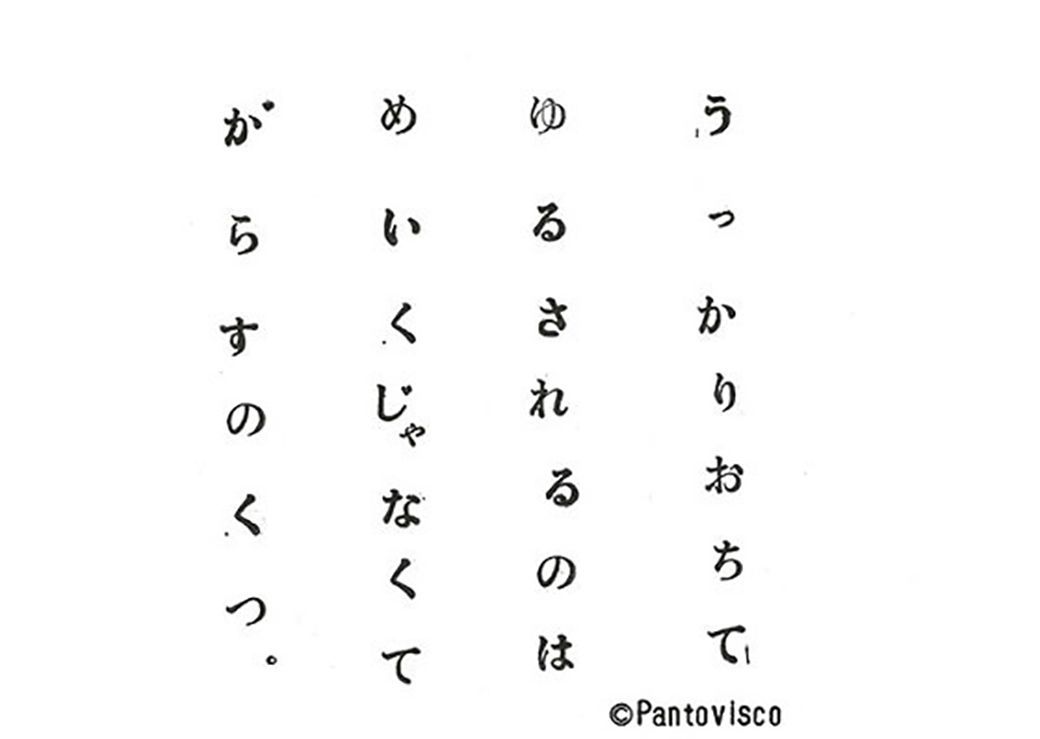 うっかりおちて
ゆるされるのは
めいくじゃなくて
がらすのくつ。
©Pantovisco